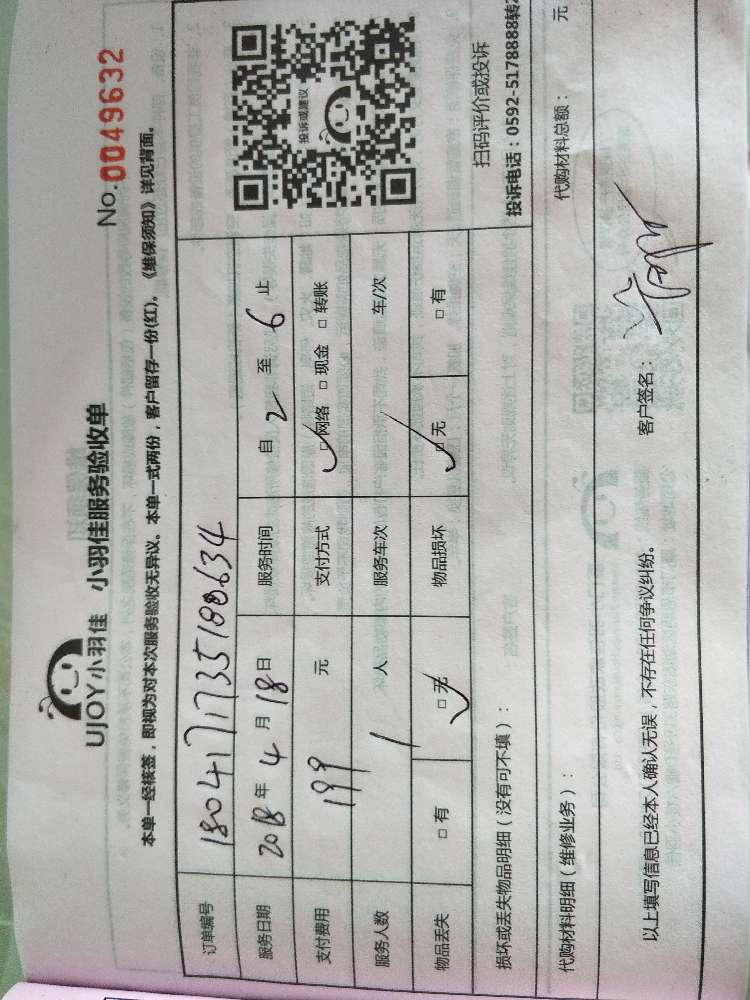 UJOY小羽佳 小羽佳服务验收单
No.0049632
本单一经核签，即视为对本次服务验收无异议。本单一式两份，客户留存一份(红)。《维保须知》详见背面。
订单编号 180417173518​8634
服务日期 2018年 4 月 18 日 服务时间 自 2 至 6 止
支付费用 199 元 支付方式 □网络 □现金 □转账
服务人数 1 人 服务车次 / 车/次
物品丢失 □有 □无 物品损坏 □无 □有
投诉或建议
扫码评价或投诉
投诉电话：0592-5178888转2
损坏或丢失物品明细（没有可不填）：
代购材料明细（维修业务）： 代购材料总额： 元
以上填写信息已经本人确认无误，不存在任何争议纠纷。 客户签名：